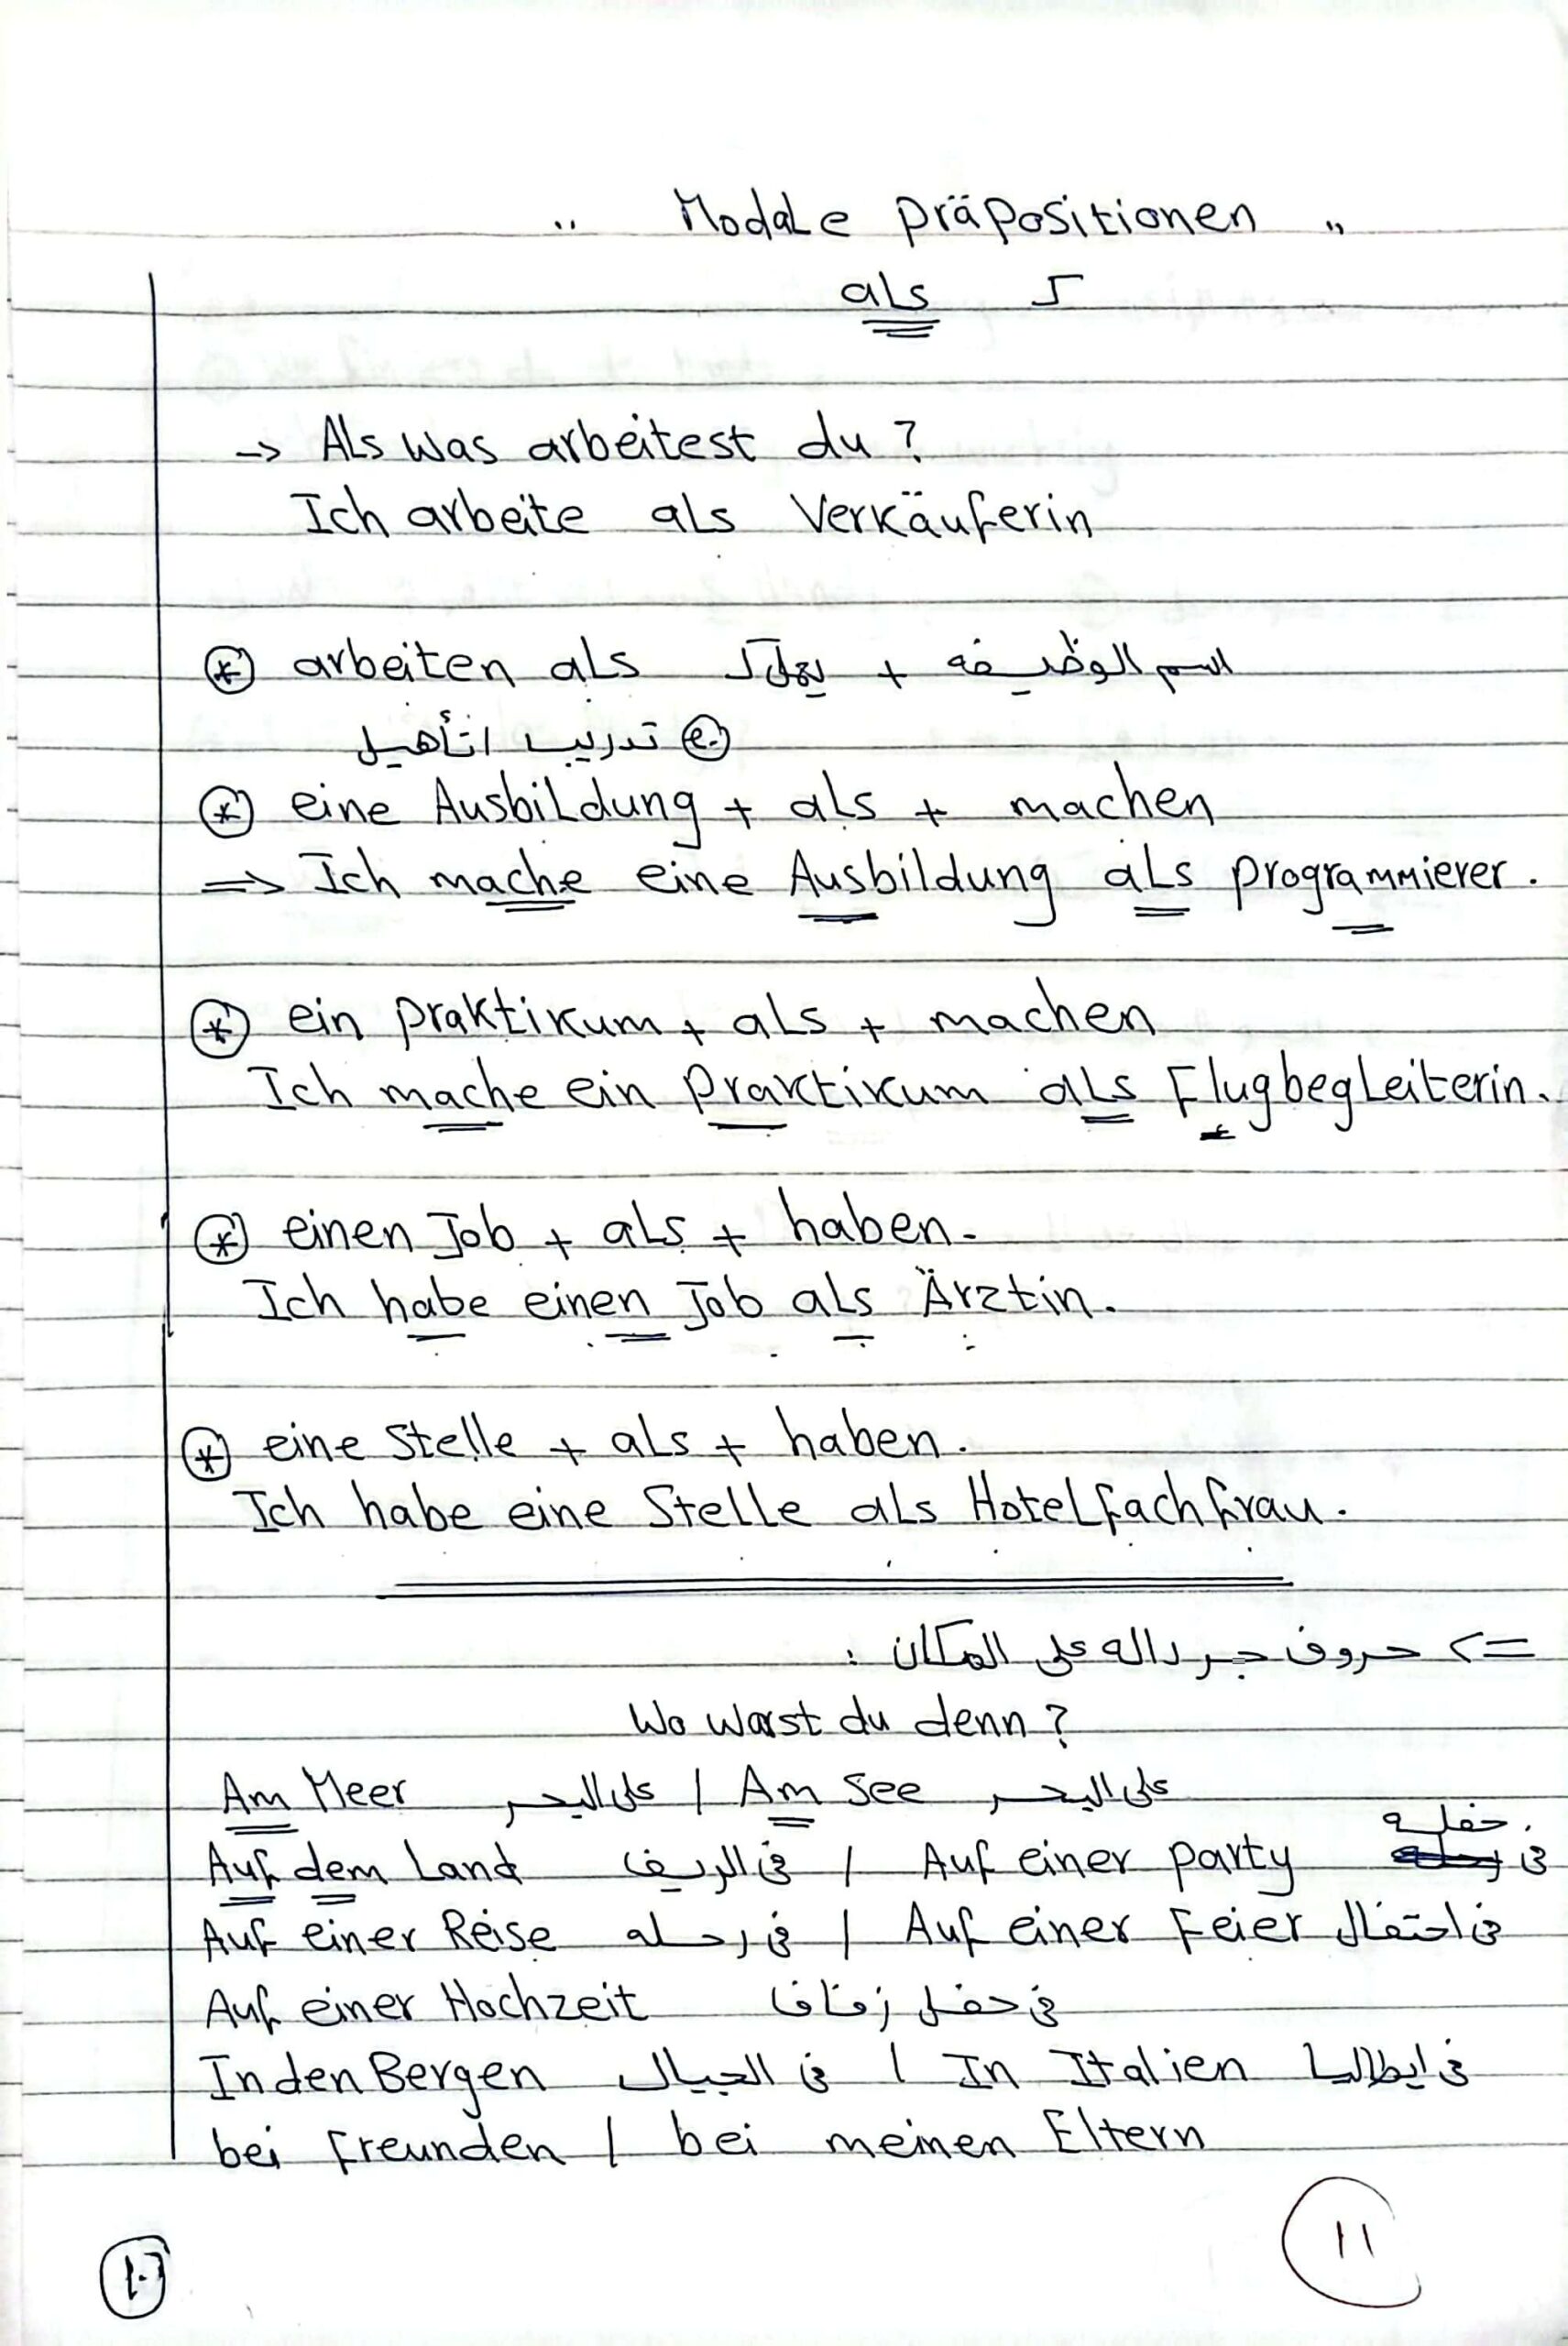 " Modale Präpositionen "
als لـ
-> Als was arbeitest du?
Ich arbeite als Verkäuferin
* arbeiten als يعمل كـ + اسم الوظيفه
تدريب / تأهيل
* eine Ausbildung + als + machen
=> Ich mache eine Ausbildung als Programmierer.
* ein Praktikum + als + machen
Ich mache ein Praktikum als Flugbegleiterin.
* einen Job + als + haben.
Ich habe einen Job als Ärztin.
* eine Stelle + als + haben.
Ich habe eine Stelle als Hotelfachfrau.
=> حروف جر داله على المكان :
Wo warst du denn?
Am Meer على البحر / Am See على البحر
Auf dem Land فى الريف / Auf einer Party فى حفله
Auf einer Reise فى رحله / Auf einer Feier فى احتفال
Auf einer Hochzeit فى حفل زفاف
In den Bergen فى الجبال / In Italien فى ايطاليا
bei Freunden / bei meinen Eltern
11